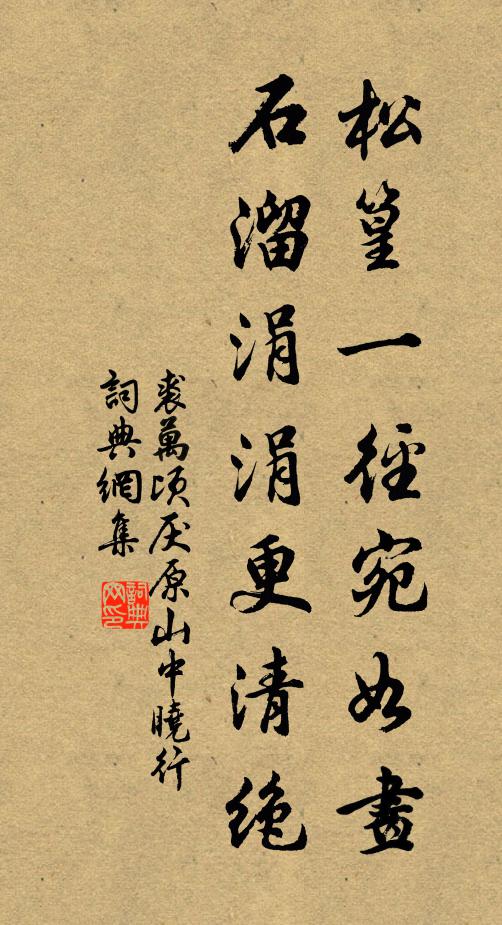 松篁一徑宛如畫
石溜涓涓更清絶
裘萬頃厌原山中曉行
詞典網集
詞典網印